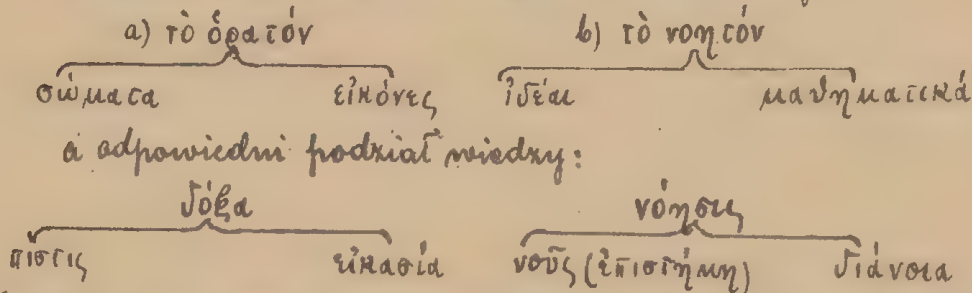 a) τὸ ὁρατόν b) τὸ νοητόν
σώματα εἰκόνες ἰδέαι μαθηματικά
a odpowiedni podział wiedzy:
δόξα νόησις
πίστις εἰκασία νοῦς (ἐπιστήμη) διάνοια